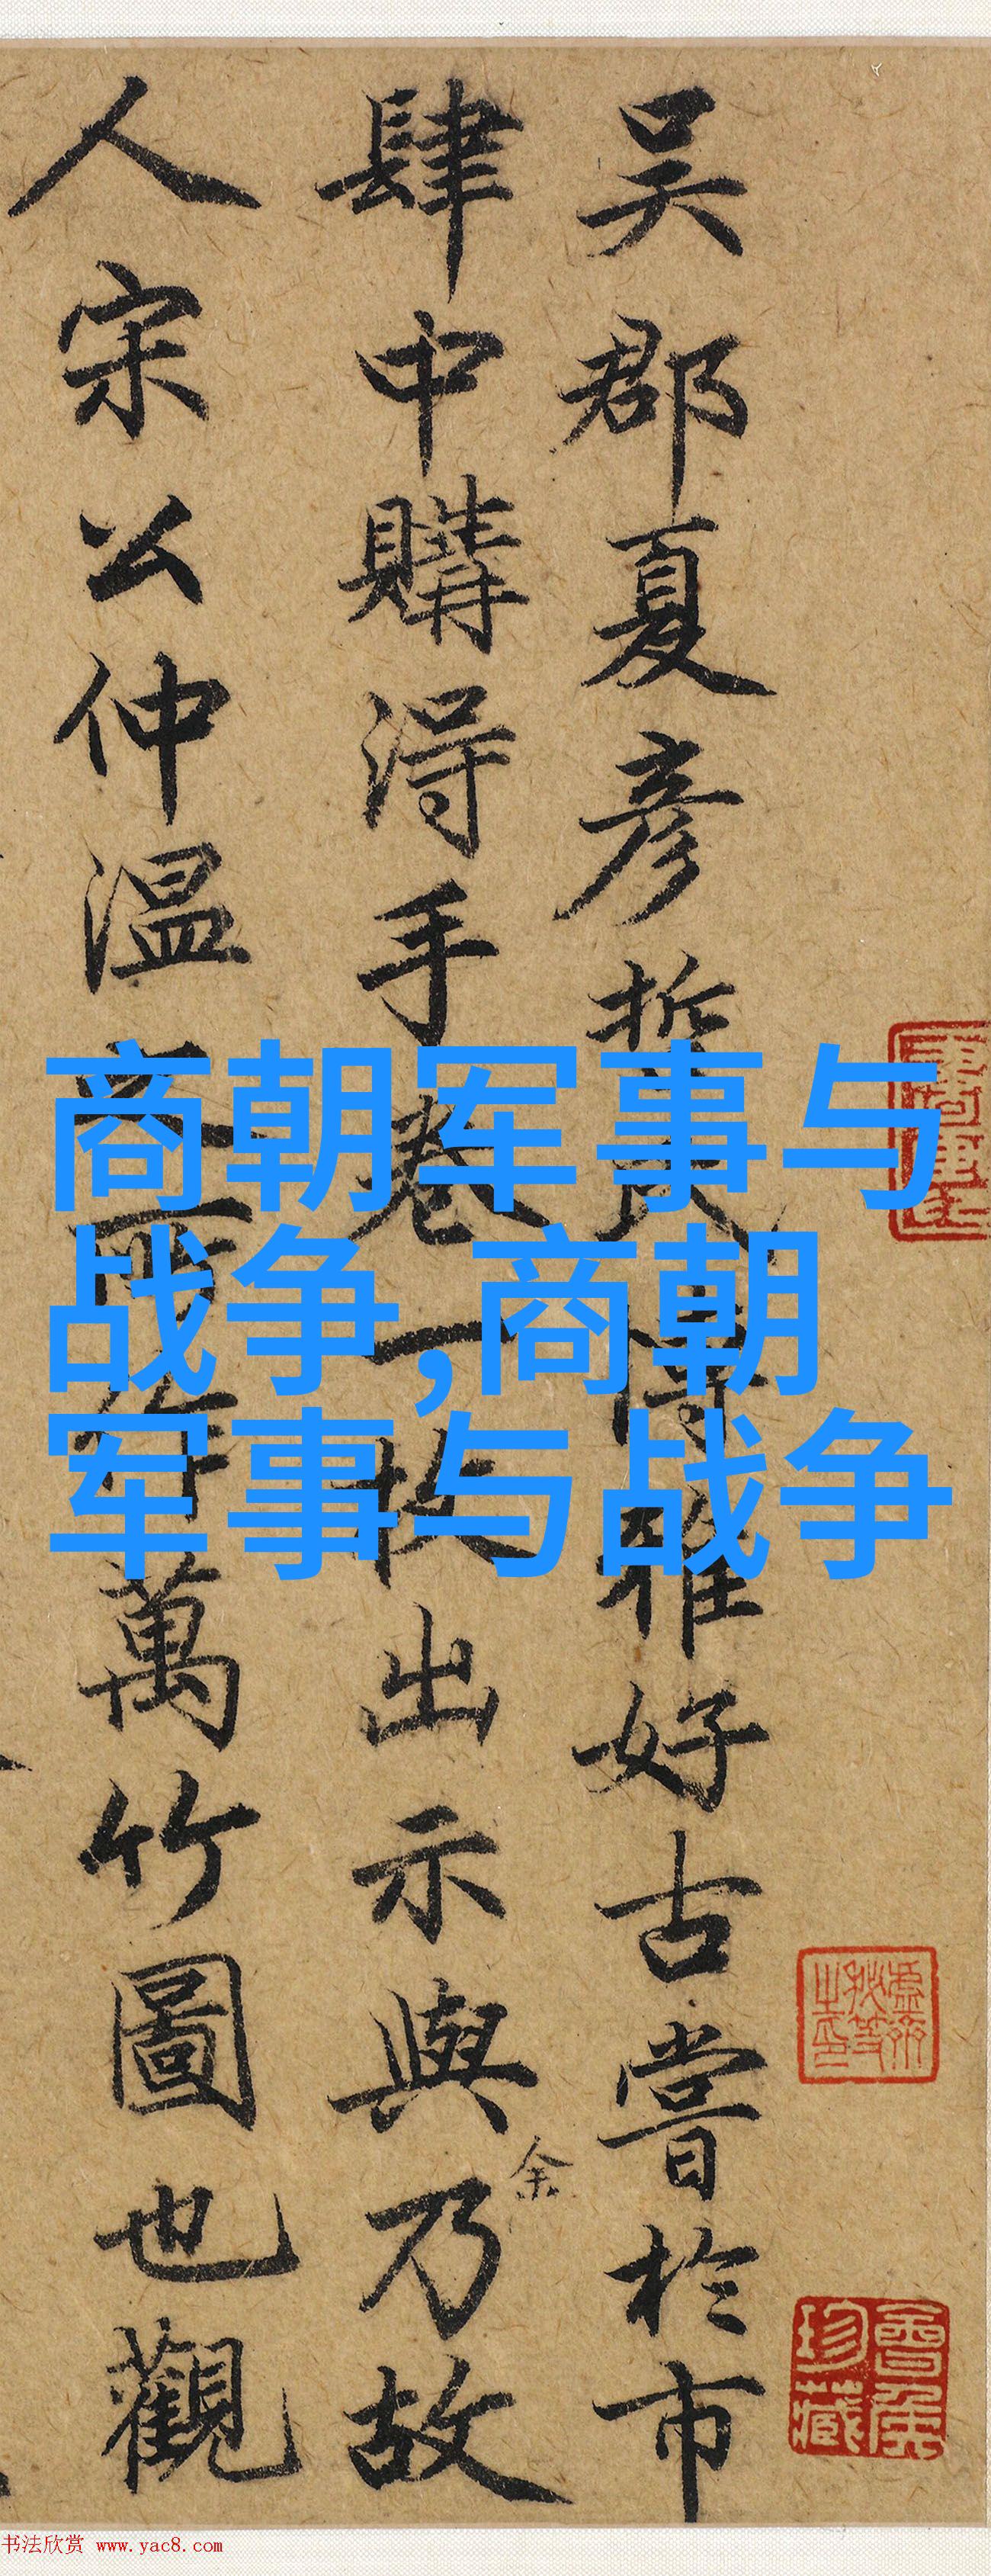 吴郡夏彦哲氏博雅好古嘗於市
肆中購得手卷一枚出示與余乃故
人宋公仲溫之所作萬竹圖也觀
商朝军事与
战争,商朝
军事与战争
书法欣赏 www.yac8.com